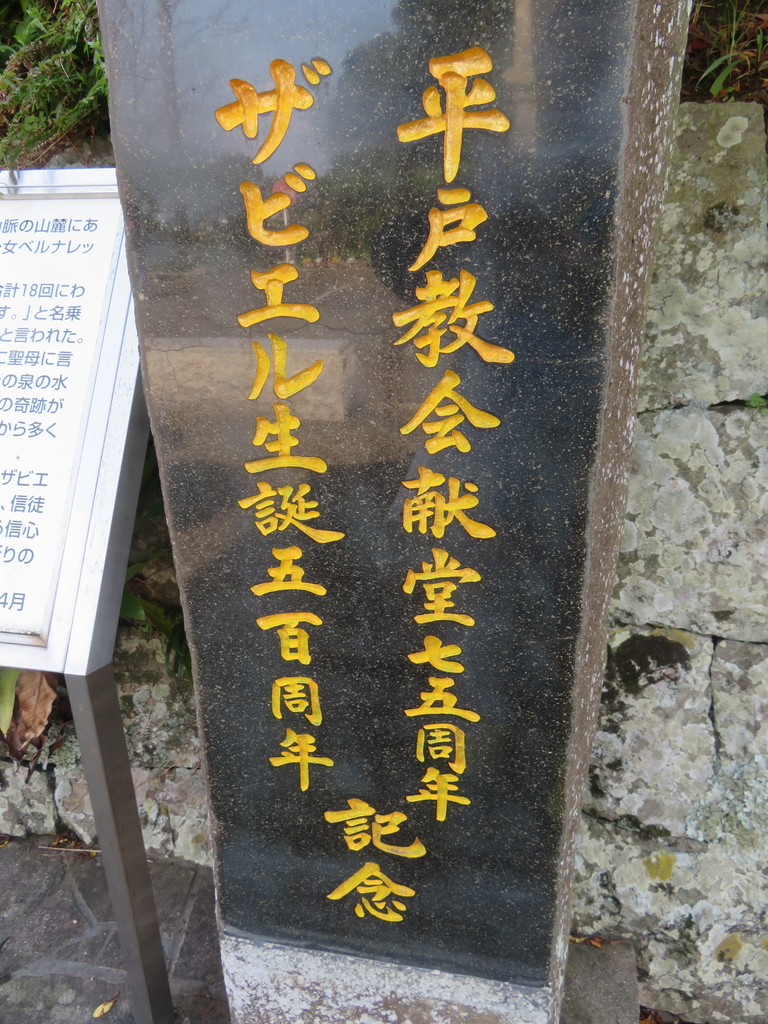 平戸教会献堂七五周年
ザビエル生誕五百周年
記念
脈の山麓にあ
女ベルナレッ
合計18回にわ
す。」と名乗
と言われた。
に聖母に言
の泉の水
の奇跡が
から多く
ザビエ
、信徒
信心
りの
4月